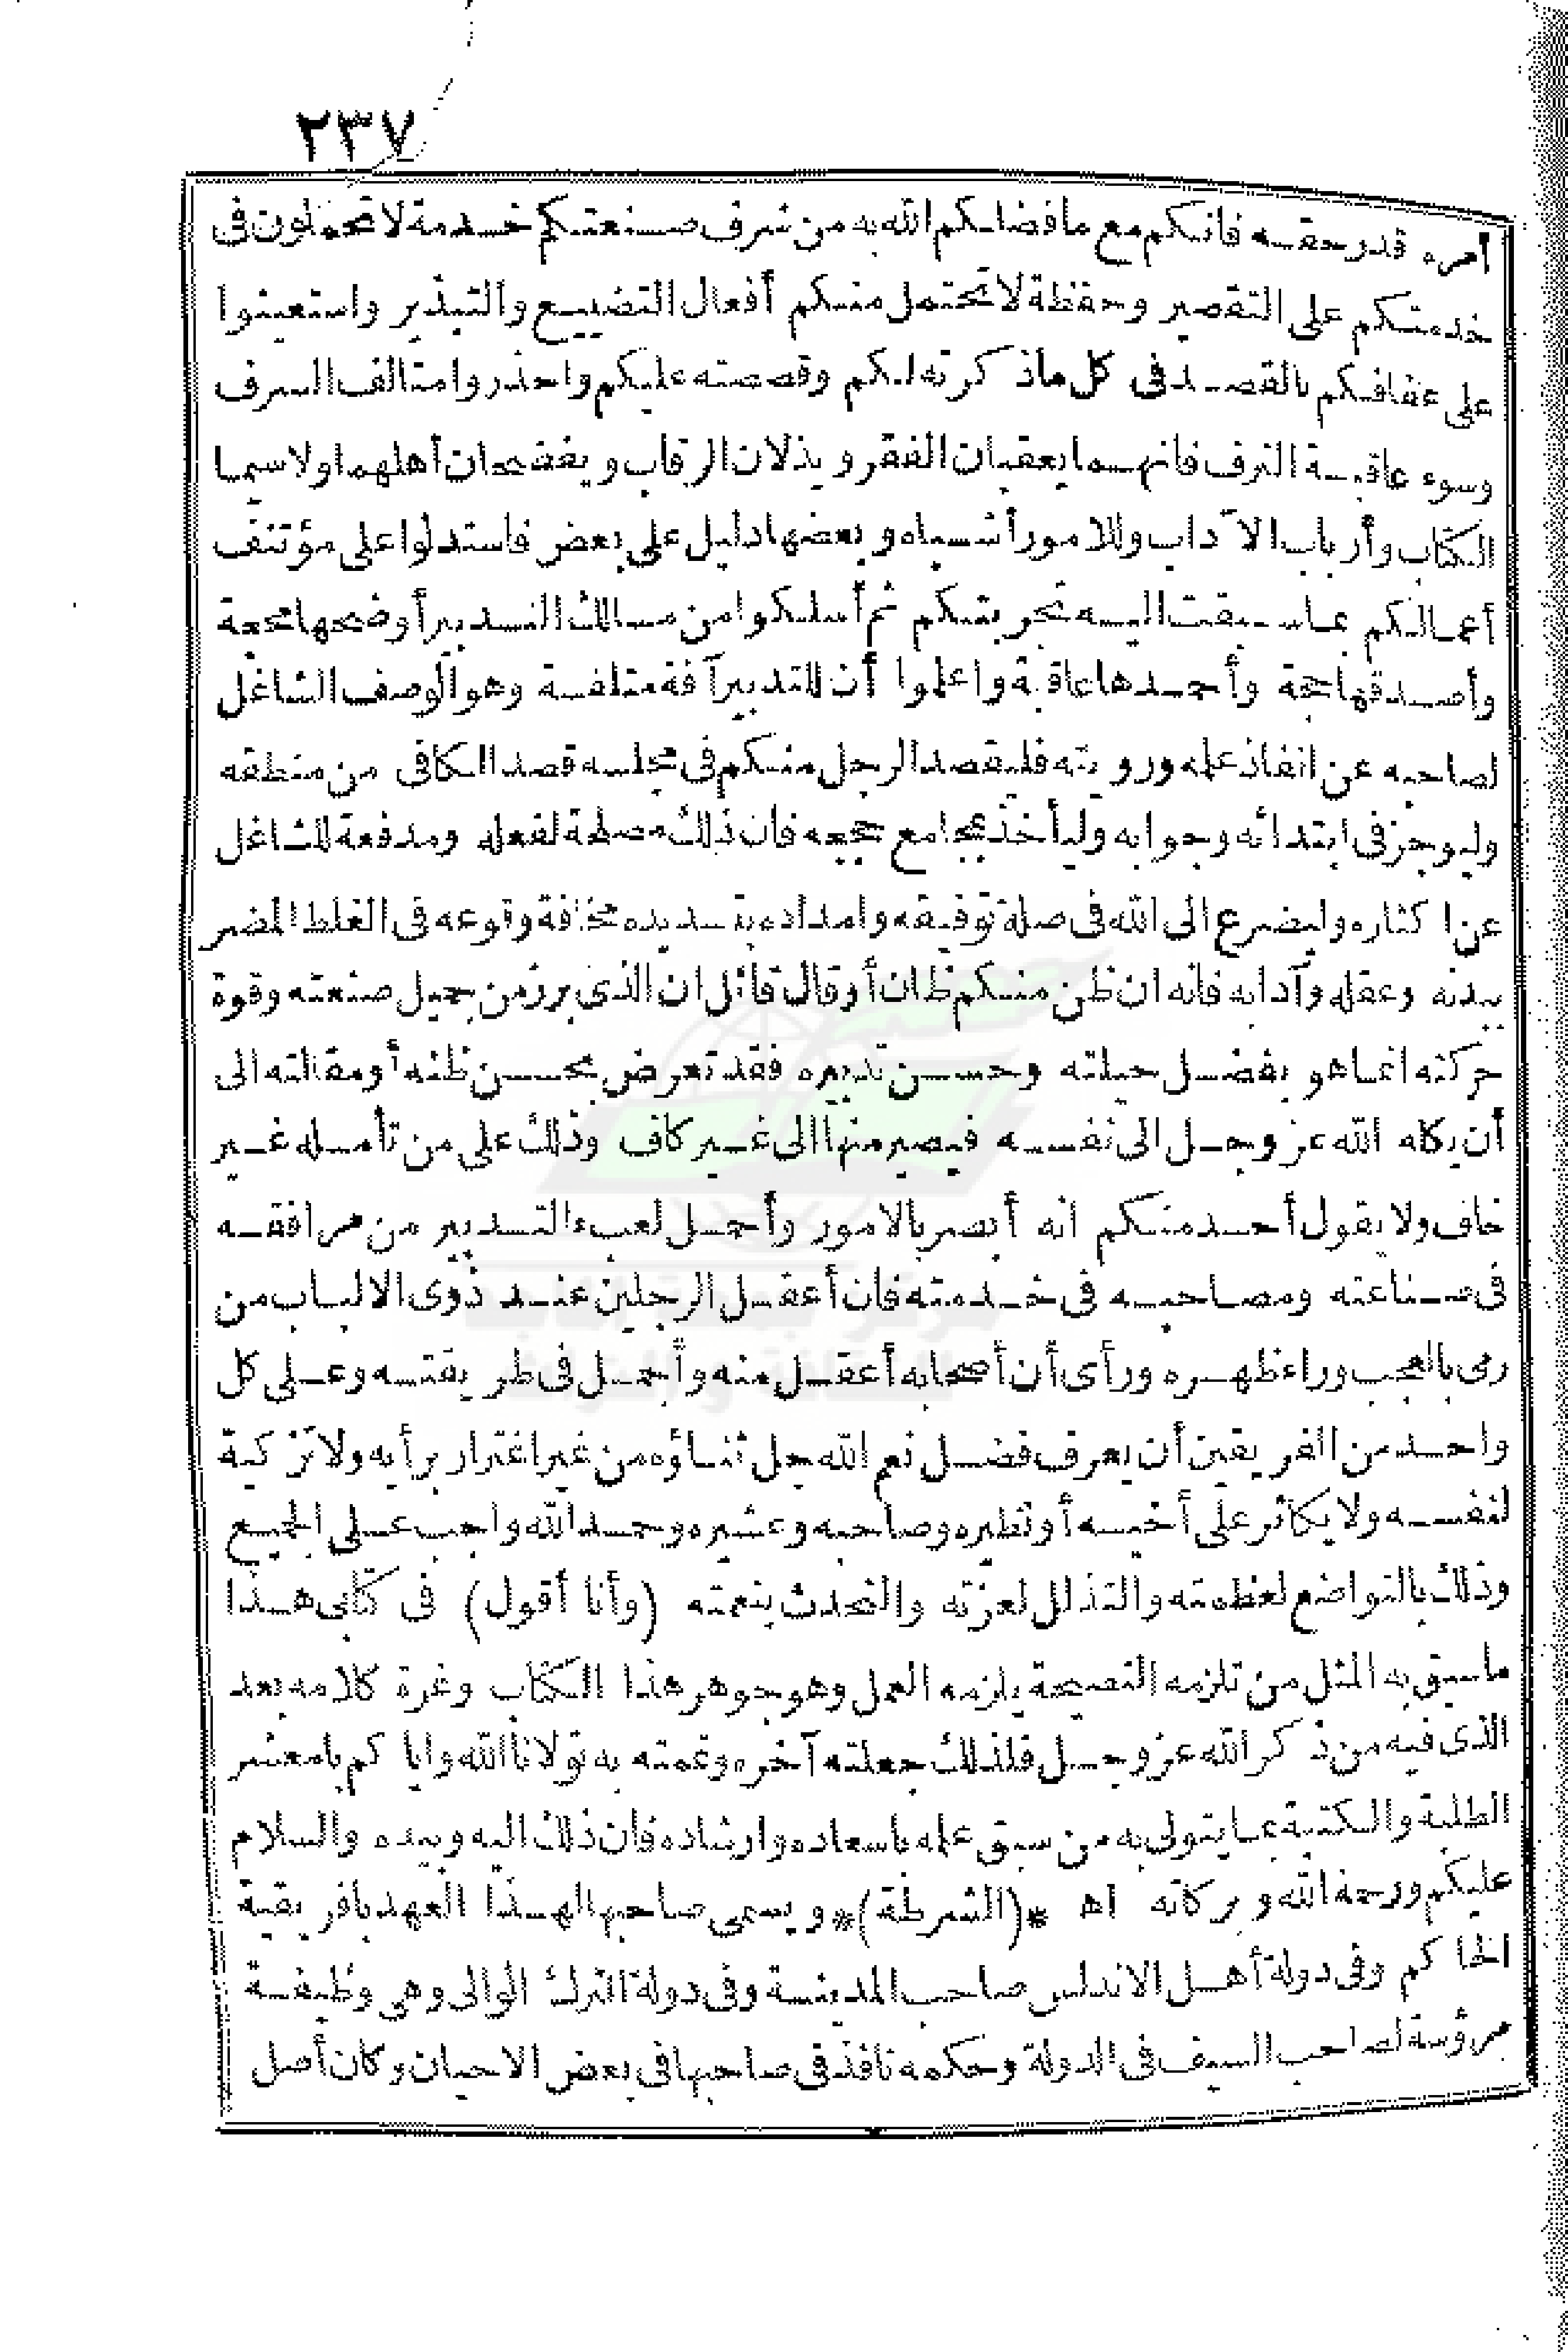 ٢٣٧
أمره قدر حقه فانكم مع ما فضلكم الله به من شرف صنعتكم خدمة لا تحملون فى
خدمتكم على التقصير وحفظة لا تحتمل منكم أفعال التضييع والتبذير واستعينوا
على عفافكم بالقصد فى كل ماذكرته لكم وقصصته عليكم واحذروا متالف السرف
وسوء عاقبة الترف فانهما يعقبان الفقر ويذلان الرقاب ويفضحان أهلهما ولا سيما
الكتاب وأرباب الآداب وللامور أشباه وبعضها دليل على بعض فاستدلوا على مؤتنف
أعمالكم بما سبقت اليه تجربتكم ثم أسلكوا من مسالك التدبير أوضحها محجة
وأصدقها حجة وأحمدها عاقبة واعلموا أن للتدبير آفة متلفة وهو الوصف الشاغل
لصاحبه عن انفاذ علمه ورويته فليقصد الرجل منكم فى مجلسه قصد الكافى من منطقه
وليوجز فى ابتدائه وجوابه وليأخذ بمجامع حججه فان ذلك مصلحة لفعله ومدفعة للشاغل
عن اكثاره وليضرع الى الله فى صلة توفيقه وامداده بتسديده مخافة وقوعه فى الغلط المضر
ببدنه وعقله وآدابه فانه ان ظن منكم ظان أوقال قائل ان الذى برز من جميل صنعته وقوة
حركته انما هو بفضل حيلته وحسن تدبيره فقد تعرض بحسن ظنه أو مقالته الى
أن يكله الله عز وجل الى نفسه فيصير منها الى غير كاف وذلك على من تأمله غير
خاف ولا يقول أحد منكم انه أبصر بالامور وأحمل لعبء التدبير من مرافقه
فى صناعته ومصاحبه فى خدمته فان أعقل الرجلين عند ذوى الالباب من
رمى بالعجب وراء ظهره ورأى أن أصحابه أعقل منه وأجمل فى طريقته وعلى كل
واحد من الفريقين أن يعرف فضل نعم الله جل ثناؤه من غير اغترار برأيه ولا تزكية
لنفسه ولا يكاثر على أخيه أو نظيره وصاحبه وعشيره وحمد الله واجب على الجميع
وذلك بالتواضع لعظمته والتذلل لعزته والتحدث بنعمته (وأنا أقول) فى كتابى هذا
ما سبق به المثل من تلزمه النصيحة يلزمه العمل وهو جوهر هذا الكتاب وغرة كلامه بعد
الذى فيه من ذكر الله عز وجل فلذلك جعلته آخره وتممته به تولانا الله واياكم يا معشر
الطلبة والكتبة بما يتولى به من سبق علمه باسعاده وارشاده فان ذلك اليه وبيده والسلام
عليكم ورحمة الله وبركاته اه *(الشرطة)* ويسمى صاحبها لهذا العهد بافريقية
الحاكم وفى دولة أهل الاندلس صاحب المدينة وفى دولة الترك الوالى وهى وظيفة
مرؤسة لصاحب السيف فى الدولة وحكمه نافذ فى صاحبها فى بعض الاحيان وكان أصل